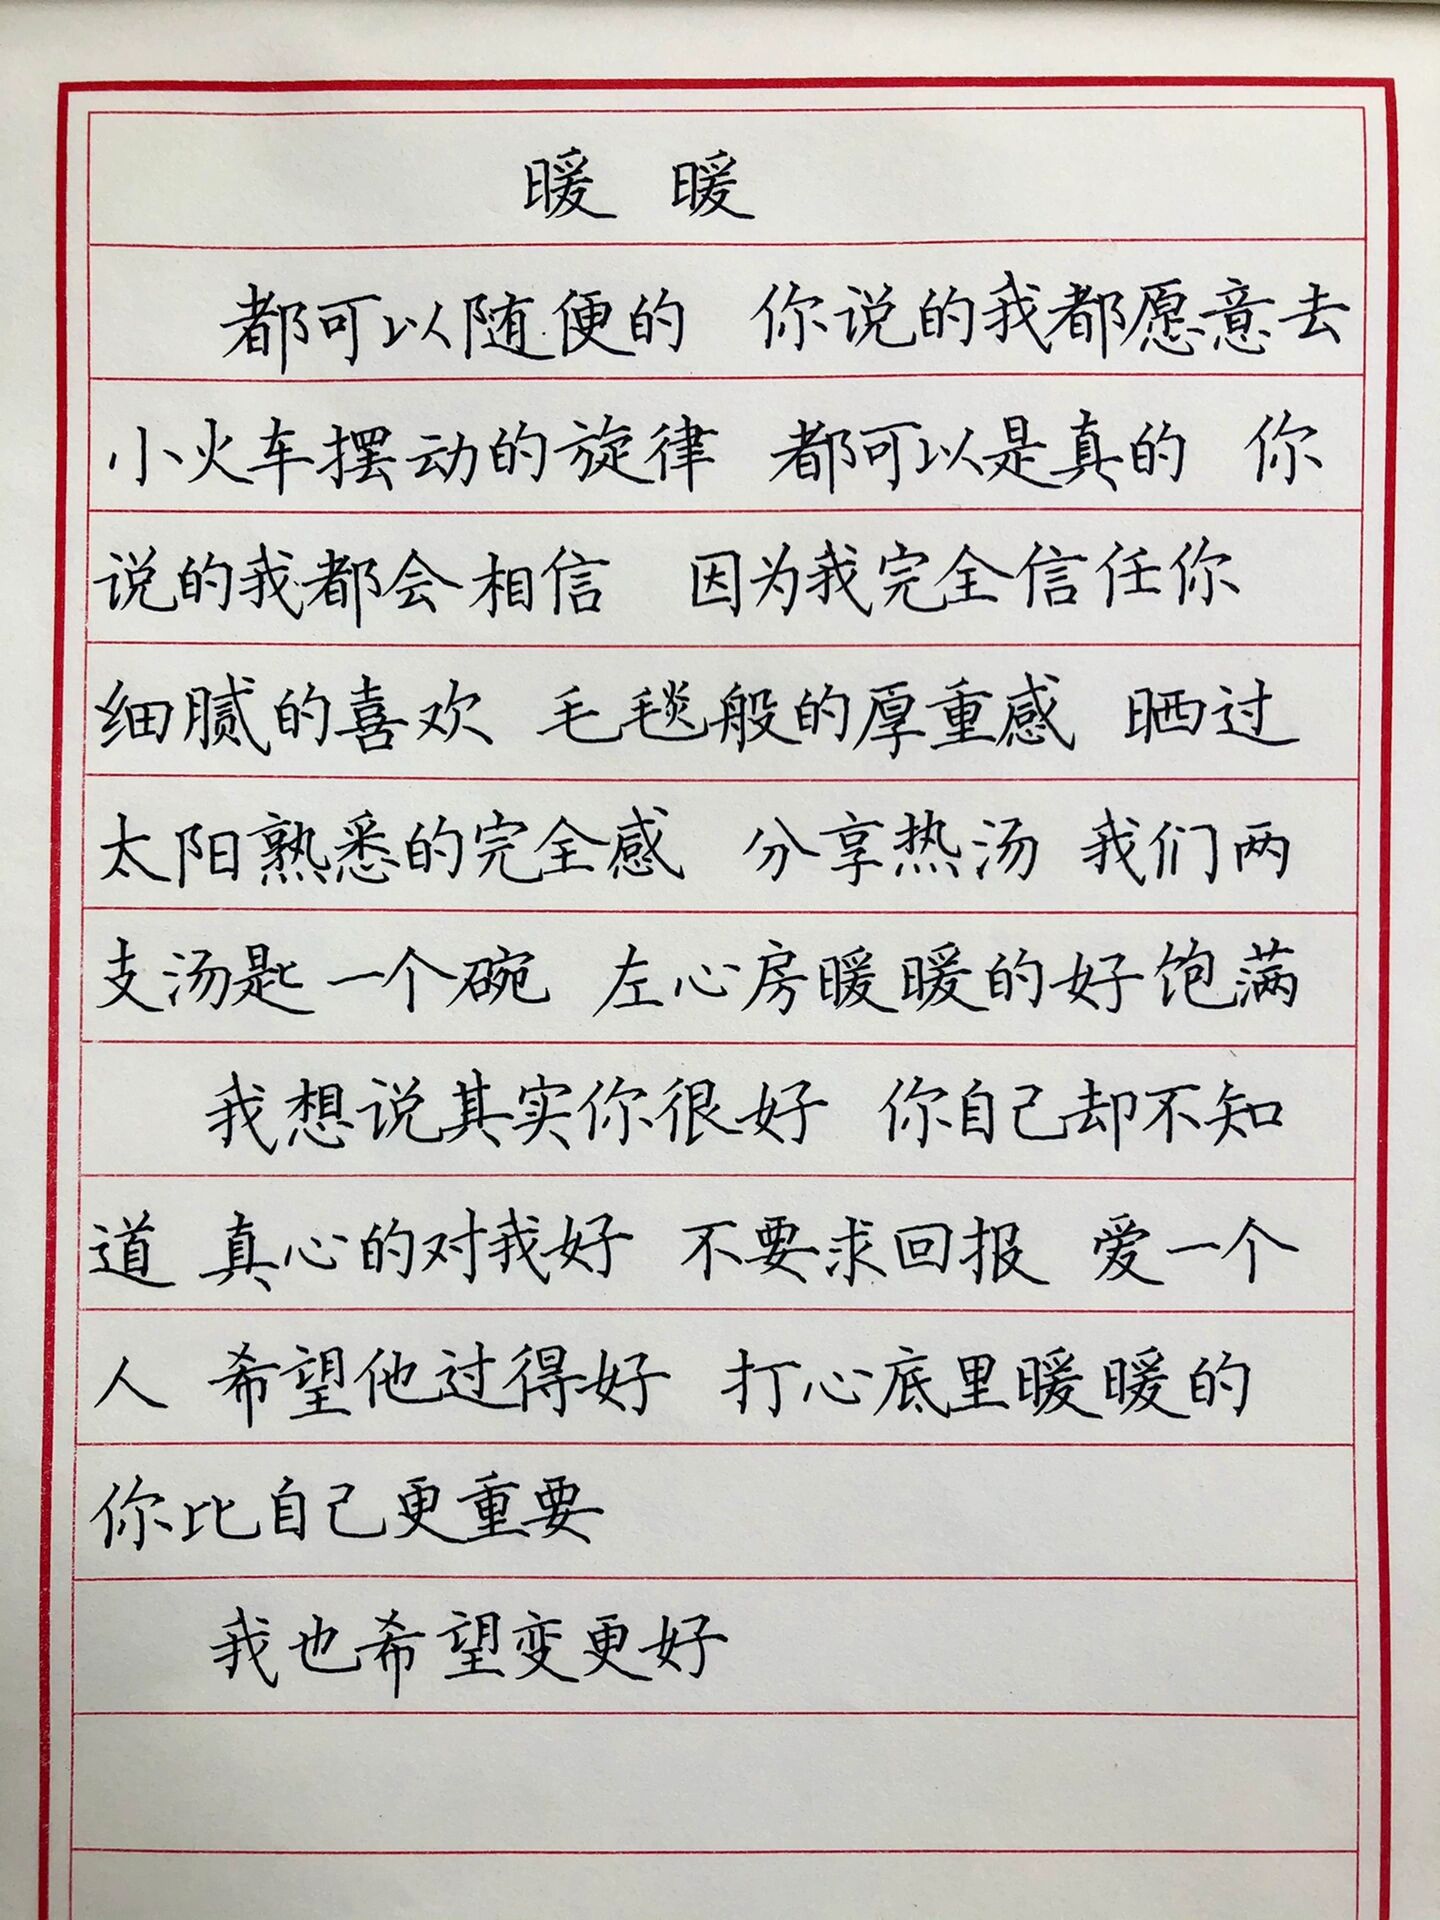 暖 暖
都可以随便的 你说的我都愿意去
小火车摆动的旋律 都可以是真的 你
说的我都会相信 因为我完全信任你
细腻的喜欢 毛毯般的厚重感 晒过
太阳熟悉的完全感 分享热汤 我们两
支汤匙一个碗 左心房暖暖的好饱满
我想说其实你很好 你自己却不知
道 真心的对我好 不要求回报 爱一个
人 希望他过得好 打心底里暖暖的
你比自己更重要
我也希望变更好